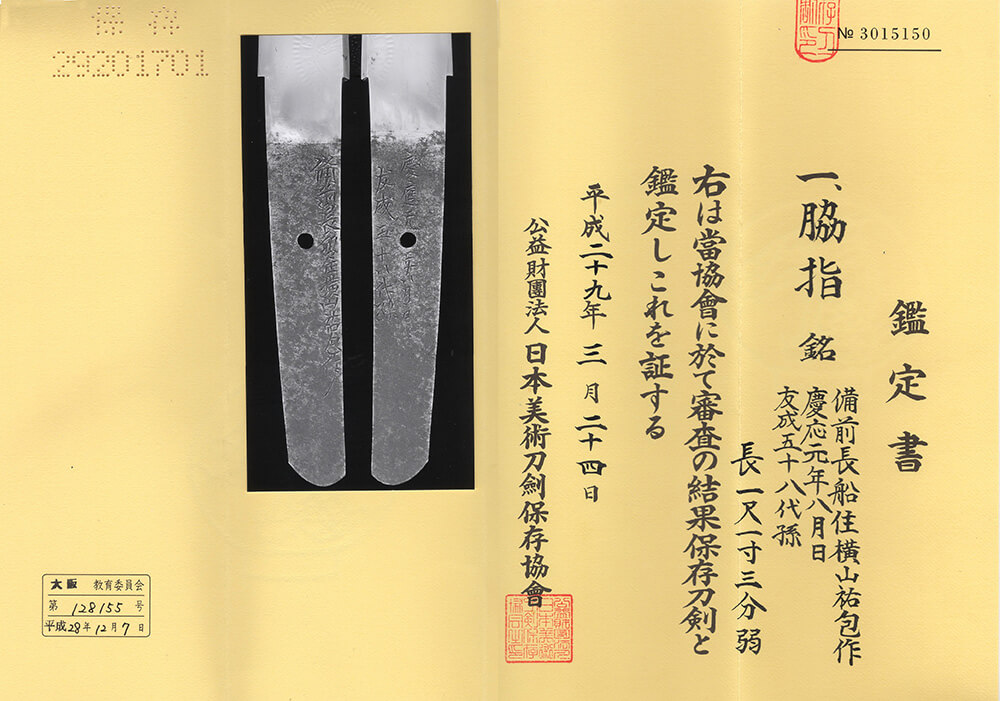 № 3015150
鑑定書
一、脇指 銘
備前長船住横山祐包作
慶応元年八月日
友成五十八代孫
長一尺一寸三分弱
右は當協會に於て審査の結果保存刀剣と
鑑定しこれを証する
平成二十九年三月二十四日
公益財團法人日本美術刀劍保存協會
保存
29201701
大阪 教育委員会
第 128155 号
平成28年12月7日